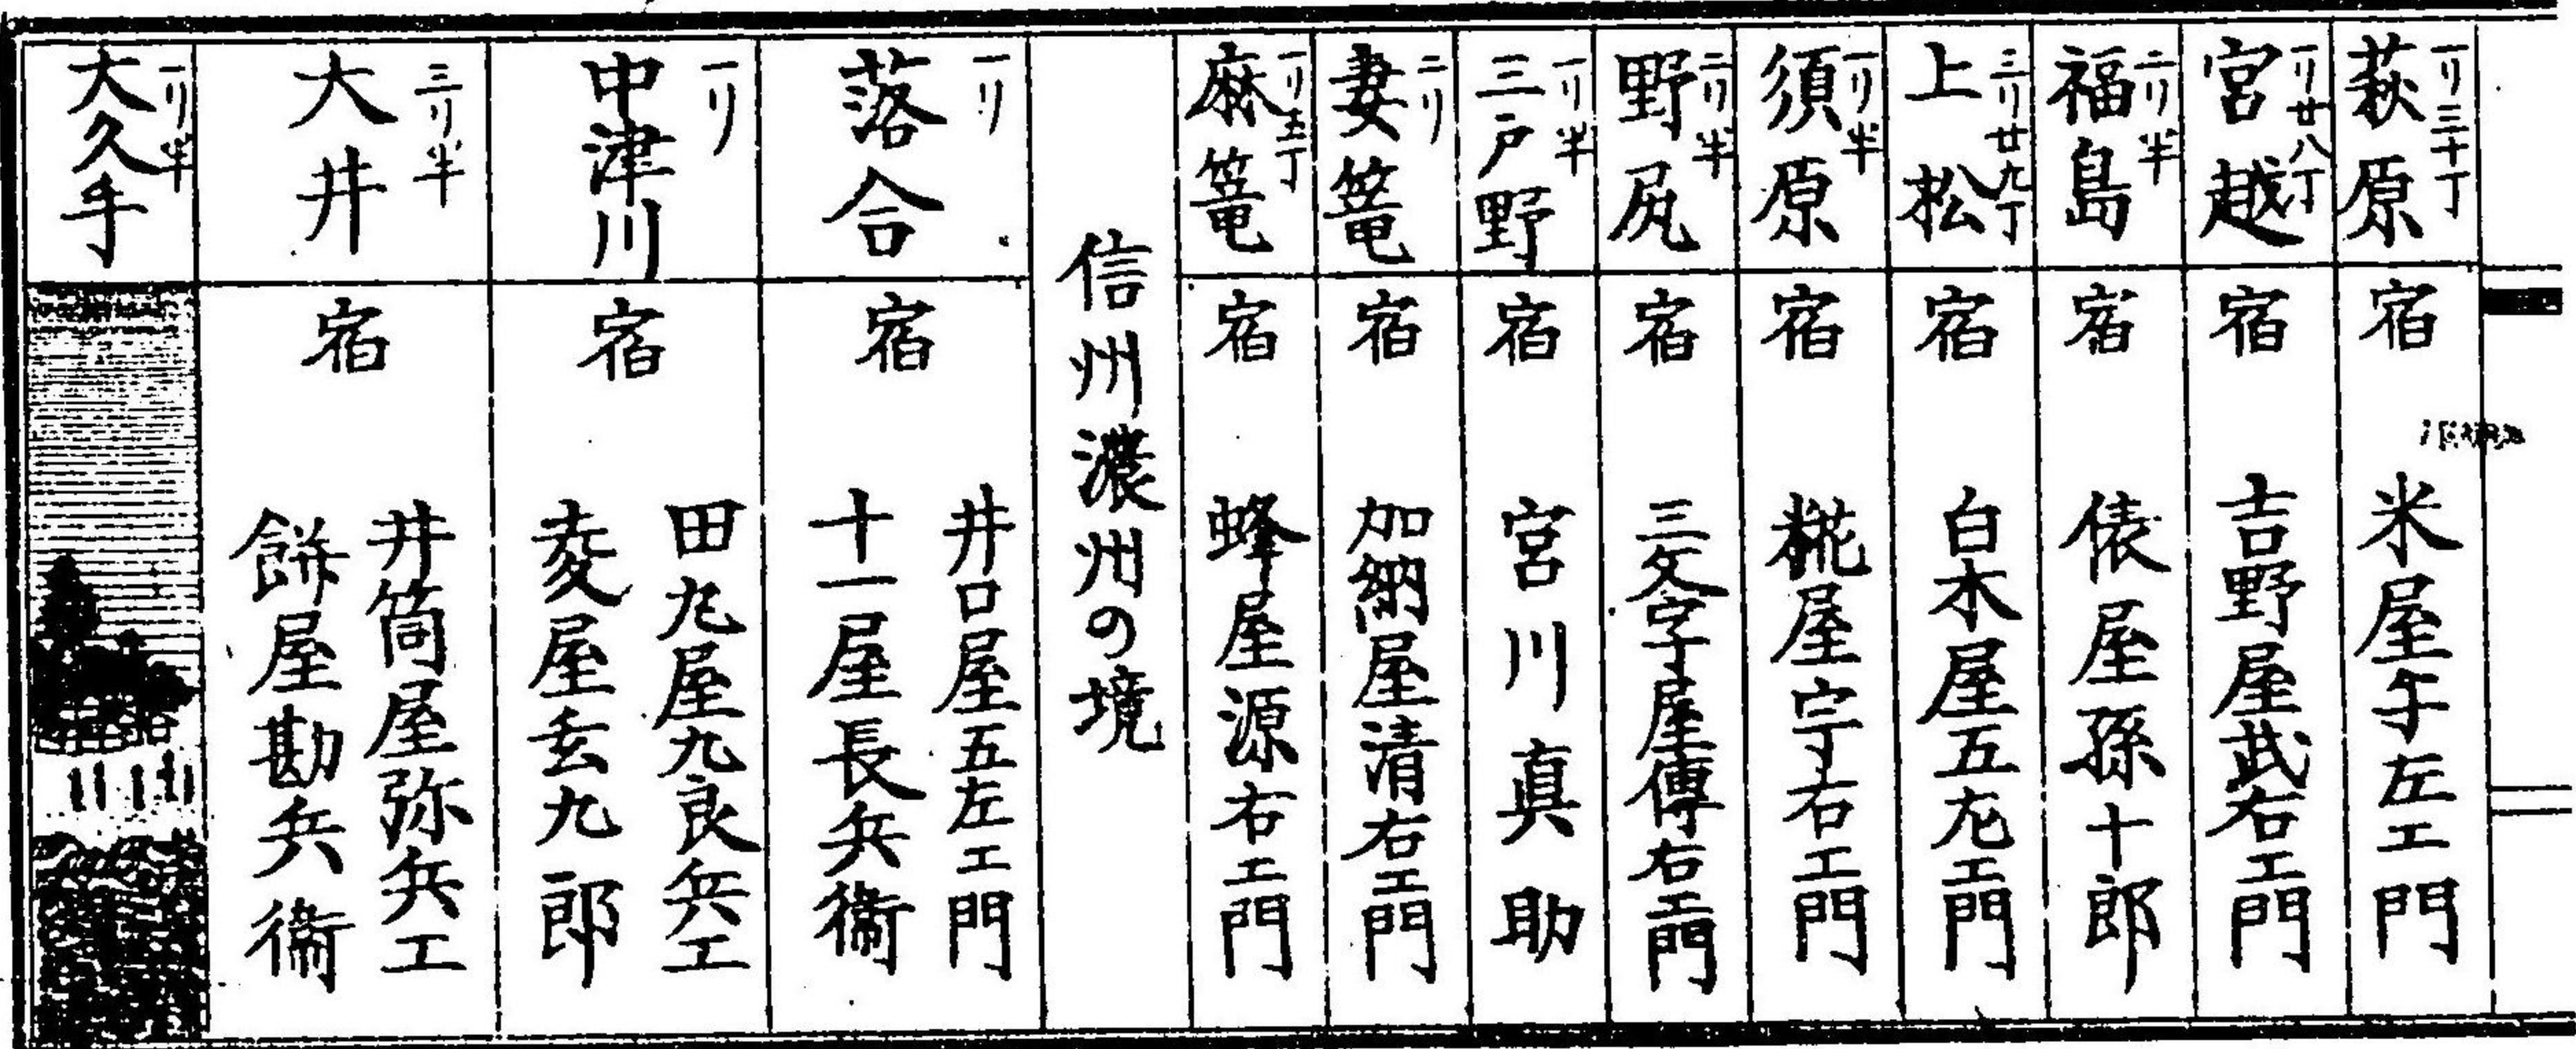 一リ三十丁
萩原
宿
米屋午左エ門
一リ廿八丁
宮越
宿
吉野屋武右エ門
二リ半
福島
宿
俵屋孫十郎
三リ廿九丁
上松
宿
白木屋五左エ門
一リ半
須原
宿
糀屋宇右エ門
二リ半
野尻
宿
三文字屋傳右エ門
一リ半
三戸野
宿
宮川真助
二リ
妻篭
宿
加納屋清右エ門
麻篭
宿
蜂屋源右エ門
信州濃州の境
一リ
落合
宿
井口屋五左エ門
十一屋長兵衞
一リ
中津川
宿
田丸屋九良兵エ
菱屋玄九郎
三リ半
大井
宿
井筒屋弥兵エ
餅屋勘兵衞
一リ半
大久手